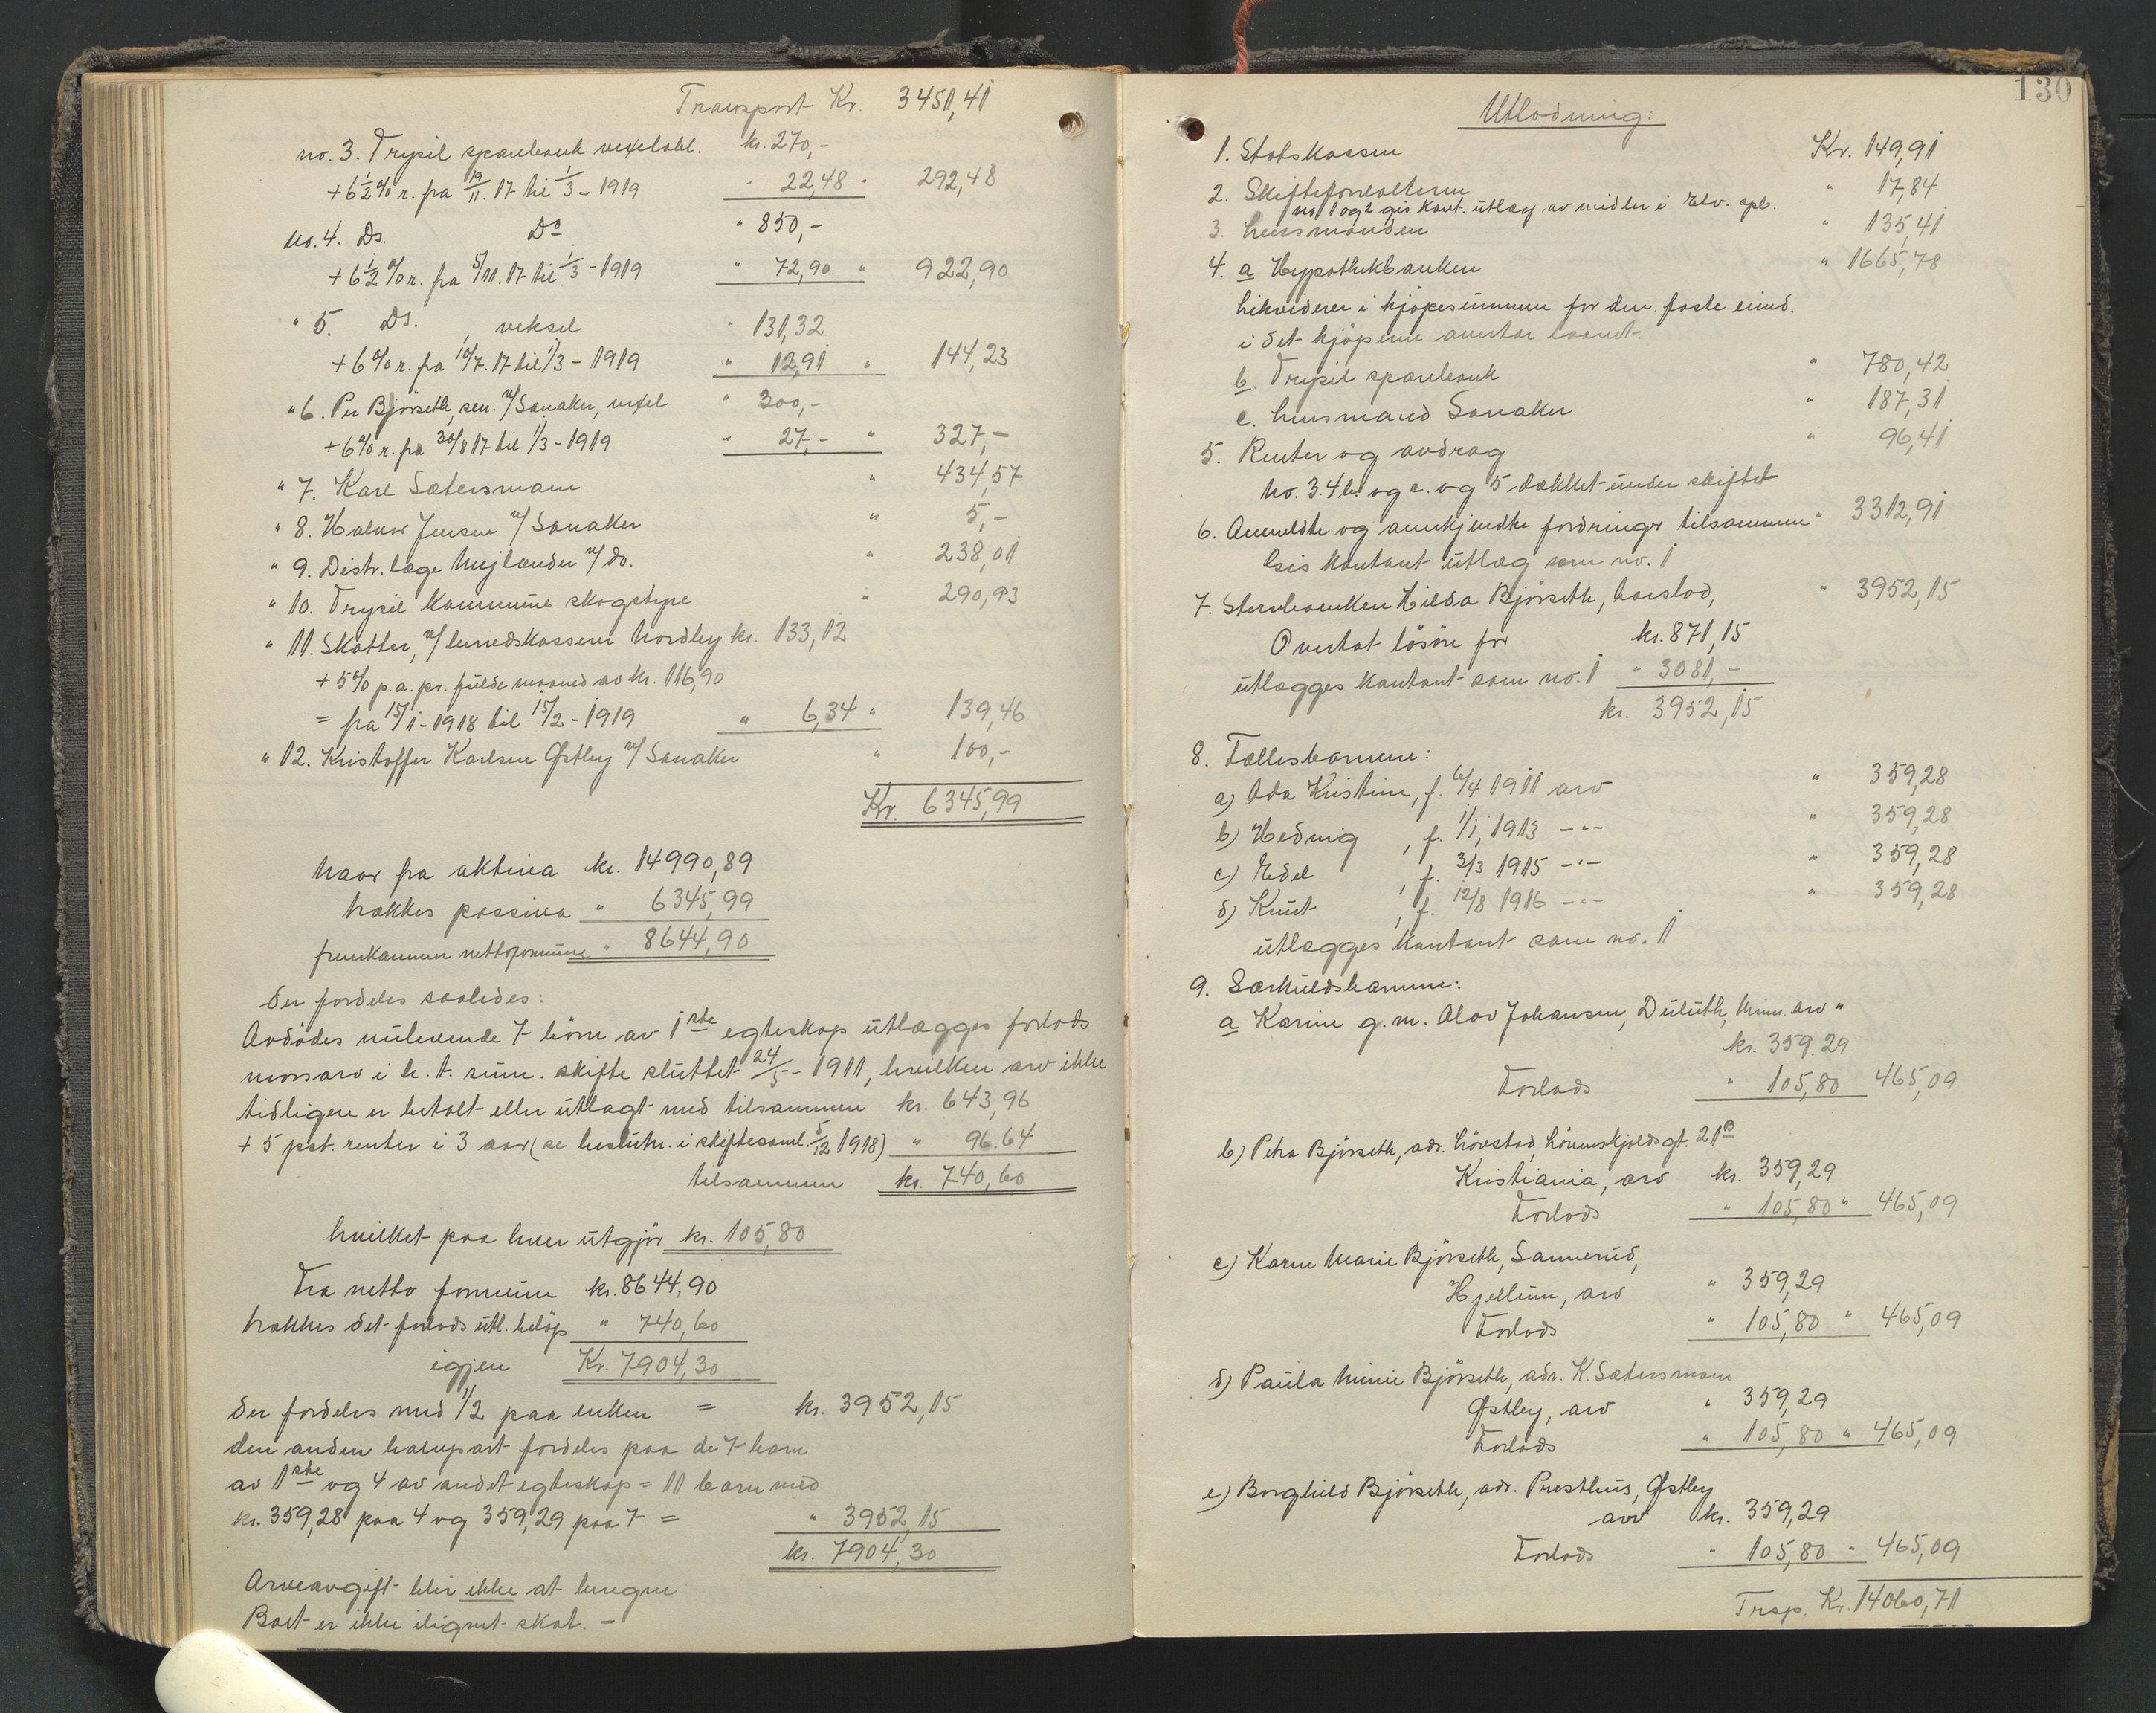 Transport Kr. 3451,41
no. 3. Trysil sparebank vexelobl. kr. 270,-
+ 6 1/2 % r. fra 19/11. 17 til 1/3 - 1919 " 22,48 " 292,48
no. 4. Ds. Do " 850,-
+ 6 1/2 % r. fra 5/11. 17 til 1/3 - 1919 " 72,90 " 922,90
" 5. Ds. veksel " 131,32
+ 6 % r. fra 10/7. 17 til 1/3 - 1919 " 12,91 " 144,23
" 6. Per Björseth, sen. v/ Sanaker, vexel " 300,-
+ 6 % r. fra 30/8 17 til 1/3 - 1919 " 27,- " 327,-
" 7. Karl Sætersmoen " 434,57
" 8. Halvor Jensen v/ Sanaker " 5,-
" 9. Distr. læge Mejlænder v/ do. " 238,01
" 10. Trysil kommune skogstyre " 290,93
" 11. Skatter, v/ herredskasserer Nordby kr. 133,12
+ 5 % p.a. pr. fulde maaned av kr. 116,90
= fra 15/1 - 1918 til 15/2 - 1919 " 6,34 " 139,46
" 12. Kristoffer Karlsen Østby v/ Sanaker " 100,-
Kr. 6345,99
Naar fra aktiva kr. 14990,89
trækkes passiva " 6345,99
fremkommer nettoformue " 8644,90
der fordeles saaledes:
Avdödes nulevende 7 börn av 1ste egteskap utlægges forlods
morsarv i h. t. sum. skifte sluttet 24/5 - 1911, hvilken arv ikke
tidligere er betalt eller utlagt med tilsammen kr. 643,96
+ 5 pct. renter i 3 aar (se beslutn. i skiftesaml. 5/12 1918) " 96.64
tilsammen kr. 740,60
hvilket paa hver utgjör kr. 105,80
Fra netto formuen kr. 8644,90
trækkes det forlods utl. belöp " 740,60
igjen Kr. 7904,30
der fordeles med 1/2 paa enken = kr. 3952,15
den anden halvpart fordeles paa de 7 barn
av 1ste og 4 av andet egteskap = 11 barn med
kr. 359,28 paa 4 og 359,29 paa 7 = " 3952,15
kr. 7904,30
Arveavgift blir ikke at beregne
Boet er ikke ilignet skat. -
130
Utlodning:
1. Statskassen Kr. 149,91
2. Skifteforvalteren " 17,84
no 1 og 2 gis kont. utlæg av midler i Elv. spb.
3. Lensmanden " 135,41
4. a Hypothekbanken " 1665,78
Likviderer i kjöpesummen for den faste eiend.
i det kjöperen overtar laanet.
b. Trysil sparebank " 780,42
c. Lensmand Sanaker " 187,31
5. Renter og avdrag " 96,41
No. 3. 4 b. og c. og 5 dækket under skiftet
6. Anmeldte og anerkjendte fordringer tilsammen " 3312,91
Gis kontant utlæg som no. 1
7. Stervboenken Hilda Björseth, boeslod, " 3952,15
Overtat lösöre for kr. 871,15
utlægges kontant som no. 1 " 3081,-
kr. 3952,15
8. Fællesbarnene:
a) Oda Kristine, f. 6/4 1911 arv " 359,28
b) Hedvig , f. 1/1, 1913 -"- " 359,28
c) Edel , f. 3/3 1915 -"- " 359,28
d) Knut , f. 12/8 1916 -"- " 359,28
utlægges kontant som no. 1
9. Særkuldsbarnene:
a Karine g. m. Olav Johansen, Duluth, Minn. arv "
kr. 359.29
Forlods " 105,80 465,09
b) Petra Björseth, adr. Lövstad, Lörenskjoldsgt. 21 B
Kristiania, arv kr. 359,29
Forlods " 105,80 " 465,09
c) Karen Marie Björseth, Sannerud,
Hjellum, arv " 359,29
Forlods " 105,80 " 465,09
d) Paula Minie Björseth, adr. K. Sætersmoen
Østby, arv " 359,29
Forlods " 105,80 " 465,09
e) Borghild Björseth, adr. Presthus, Østby
arv kr. 359,29
Forlods " 105,80 " 465,09
Trsp. Kr. 14060,71